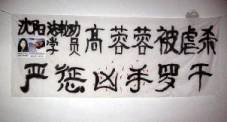 沈阳法轮功
学员高蓉蓉被虐杀
严惩凶手罗干